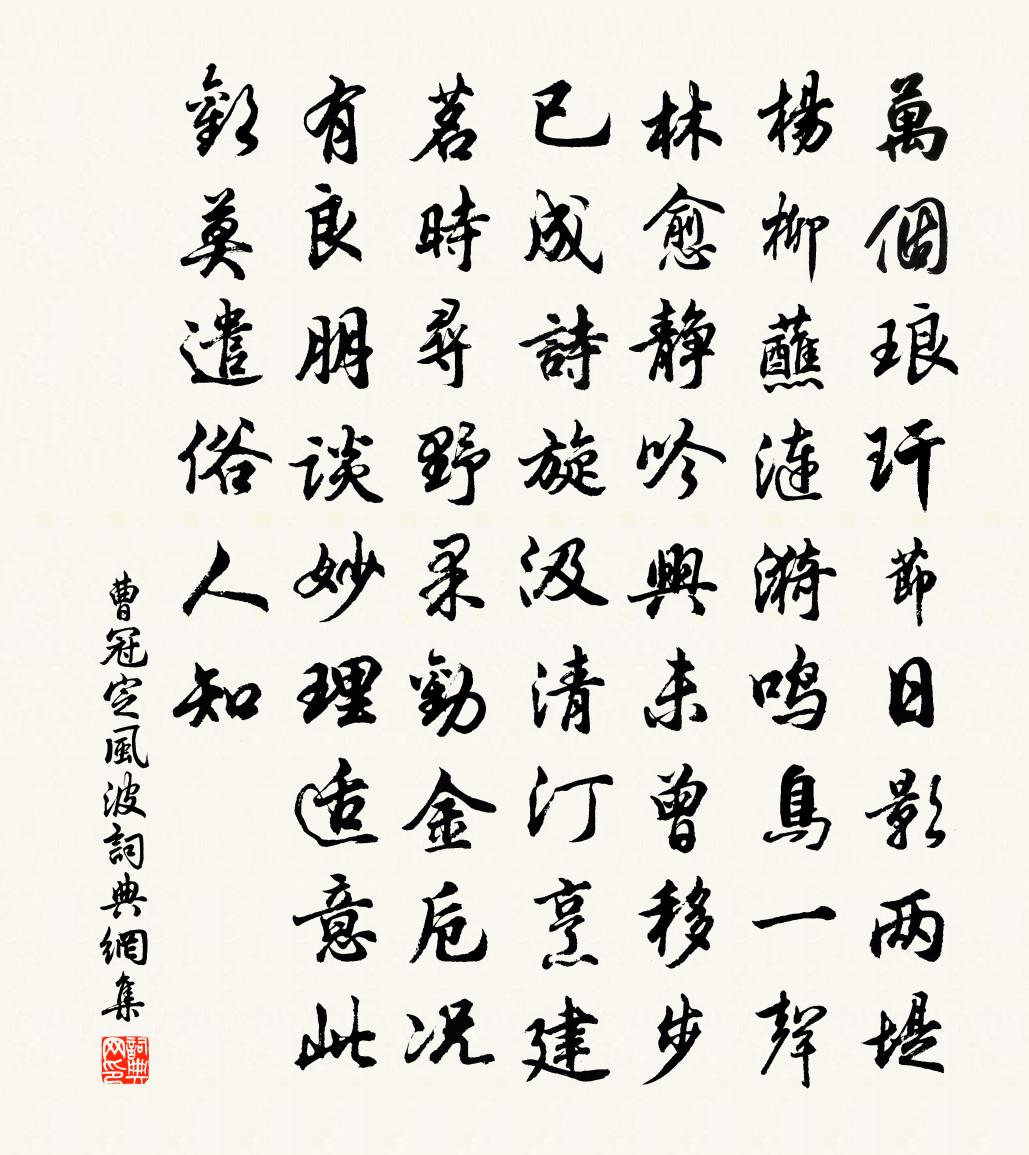 萬個琅玕節日影两堤
楊柳蘸漣漪鳴鳥一聲
林愈静吟興未曾移步
已成詩旋汲清汀烹建
茗時尋野果勸金卮况
有良朋談妙理适意此
歡莫遣俗人知
曹冠定風波詞典網集
詞典网印